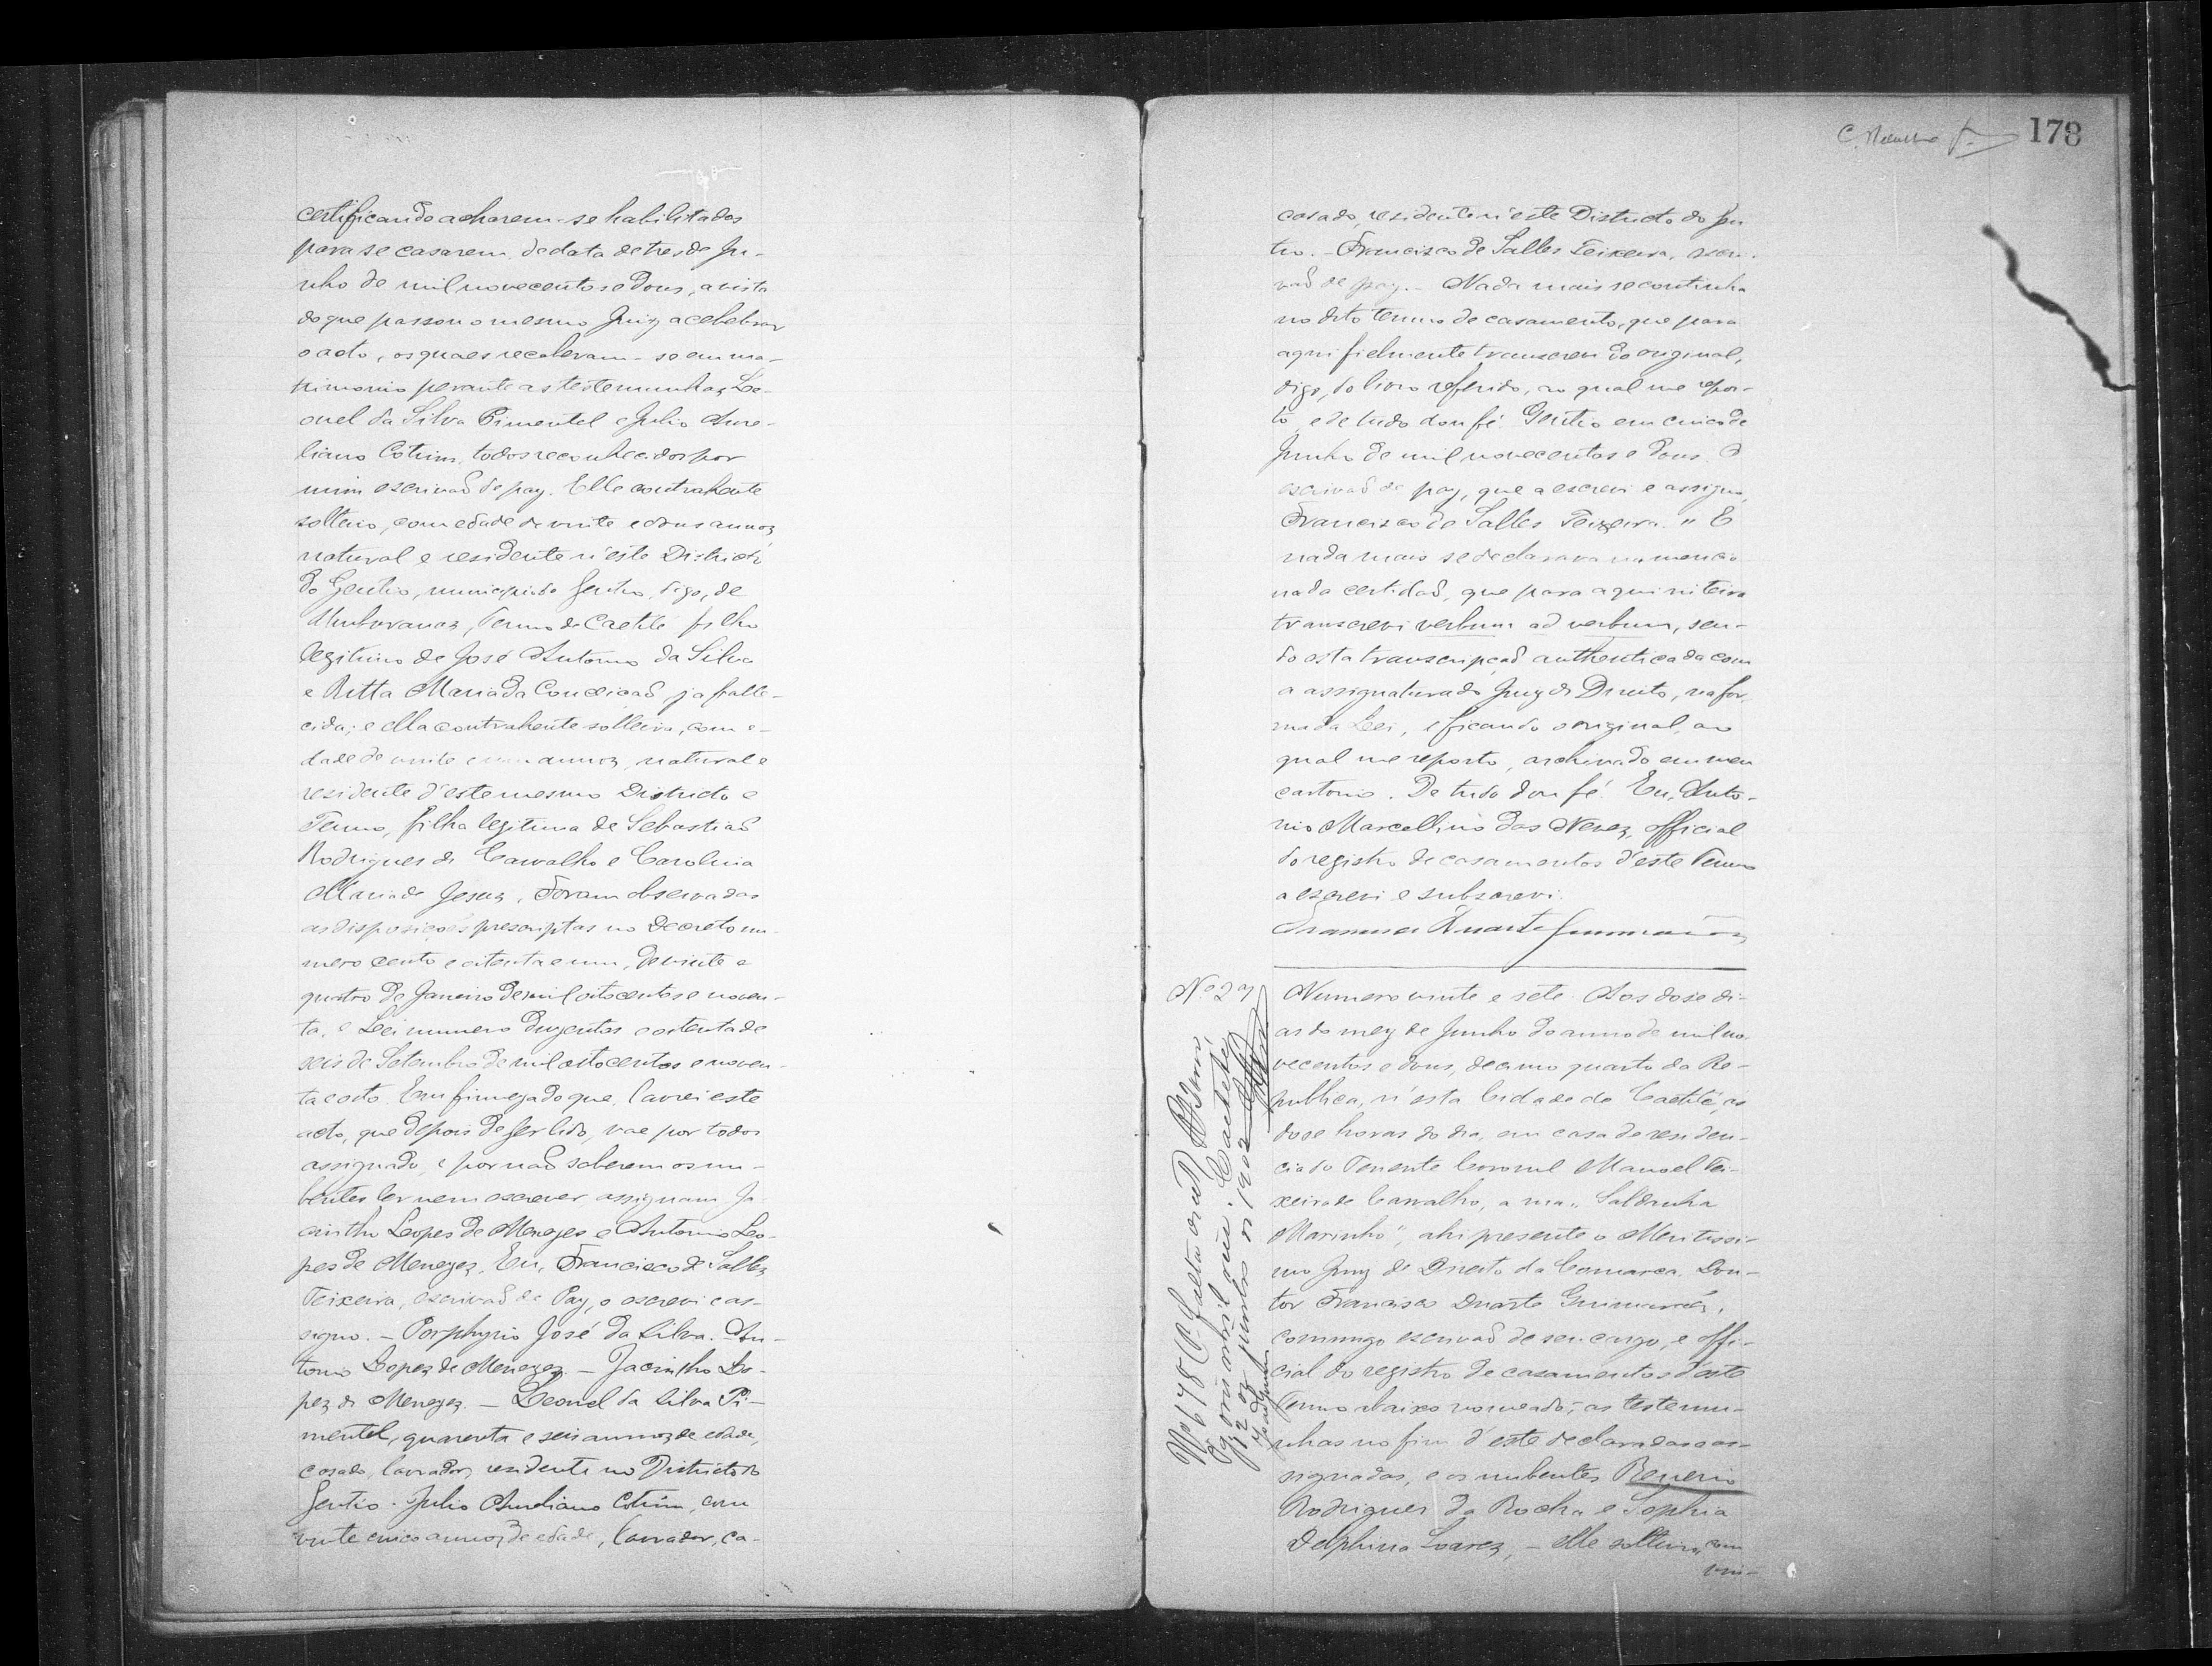 certificando acharem-se habilitados
para se casarem, de data de tres de Ju-
nho de mil novecentos e dous, a vista
do que passou o mesmo Juiz a celebrar
o acto, os quaes receberam-se em ma-
trimonio perante as testemunhas Le-
onel da Silva Pimentel e Julio Aure-
liano Cotrim, todos reconhecidos por
mim escrivaõ de paz. Elle contrahente
solteiro, com edade de vinte e dous annos,
natural e residente n'este Districto
do Gentio, municipio do Gentio, digo, de
Umburanas, Termo de Caetité, filho
legitimo de José Antonio da Silva
e Ritta Maria da Conceicaõ, ja falle-
cida; e ella contrahente solteira, com e-
dade de vinte e um annos, natural e
residente d'este mesmo Districto e
Termo, filha legitima de Sebastiaõ
Rodrigues de Carvalho e Carolina
Maria de Jesus. Foram observadas
as disposições prescriptas no Decreto nu-
mero cento e oitenta e um, de vinte e
quatro de Janeiro de mil oitocentos e noven-
ta, e Lei numero duzentos e oitenta de
seis de Setembro de mil oitocentos e noven-
ta e oito. Em firmeza do que, lavrei este
acto, que depois de ser lido, vae por todos
assignado, e por naõ saberem os nu-
bentes ler nem escrever assignam Ja-
cintho Lopes de Menezes e Antonio Lo-
pes de Menezes. Eu, Francisco de Salles
Teixeira, escrivaõ de Paz, o escrevi e as-
signo. - Porphyrio José da Silva. - An-
tonio Lopes de Menezes - Jacintho Lo-
pes de Menezes. - Leonel da Silva Pi-
mentel, quarenta e seis annos de edade,
casado, lavrador, residente no Districto do
Gentio. Julio Aureliano Cotrim, com
vinte cinco annos de edade, lavrador, ca-
178
casado, residente n'este Districto do Gen
tio. - Francisco de Salles Teixeira, escri-
vaõ de paz. - Nada mais se continha
no dito termo de casamento, que para
aqui fielmente transcrevi do original,
digo, do livro referido, ao qual me repor-
to, e de tudo dou fé. Gentio em cinco de
Junho de mil novecentos e dous. O
escrivaõ de paz, que a escrevi e assigno,
Francisco de Salles Teixeira. " E
nada mais se declarava na mencio
nada certidaõ, que para aqui inteira
transcrevi verbum ad verbum, sen-
do esta transcripçaõ authenticada com
a assignatura do Juiz de Direito, na for-
ma da Lei, e ficando o original, ao
qual me reporto, archivado em meu
cartorio. De tudo dou fé. Eu, Anto-
nio Marcellino das Neves, official
do registro de casamentos d'este Termo
a escrevi e subscrevi.
Francisco Duarte Guimarães
Nº 27
Numero vinte e sete. Aos dose di-
as do mez de Junho do anno de mil no-
vecentos e dous, decimo quarto da Re-
publica, n'esta Cidade de Caetité, as
dose horas do dia, em casa de residen-
cia do Tenente Coronel Manoel Tei-
xeira de Carvalho, a rua "Saldanha
Marinho", ahi presente o Meritissi-
mo Juiz de Direito da Comarca, Dou-
tor Francisco Duarte Guimarães,
commigo escrivaõ de seu cargo, e offi-
cial do registro de casamentos d'este
Termo abaixo nomeado, as testemu-
nhas no fim d'este declaradas e as-
signadas, e os nubentes Reverio
Rodrigues da Rocha e Sophia
Delphina Soares, - elle solteiro, com
vin-
12 de Junho de 1902